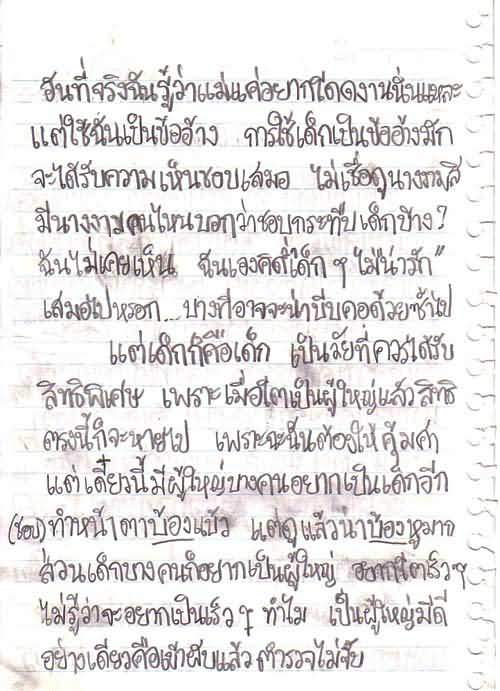 อันที่จริงฉันรู้ว่าแม่แค่อยากโดดงานนั่นแหละ
แต่ใช้ฉันเป็นข้ออ้าง การใช้เด็กเป็นข้ออ้างมัก
จะได้รับความเห็นชอบเสมอ ไม่เชื่อดูนางงามสิ
มีนางงามคนไหนบอกว่าชอบกระทืบเด็กบ้าง?
ฉันไม่เคยเห็น ฉันเองคิดว่าเด็ก ๆ ไม่"น่ารัก"
เสมอไปหรอก... บางทีอาจจะน่าบีบคอด้วยซ้ำไป
แต่เด็กก็คือเด็ก เป็นวัยที่ควรได้รับ
สิทธิพิเศษ เพราะเมื่อโตเป็นผู้ใหญ่แล้วสิทธิ
ตรงนี้ก็จะหายไป เพราะฉะนั้นต้องใช้ให้คุ้มค่า
แต่เดี๋ยวนี้มีผู้ใหญ่บางคนอยากเป็นเด็กอีก
(ชอบ)ทำหน้าตาบ้องแบ๊ว แต่ดูแล้วน่าบ้องหูมาก
ส่วนเด็กบางคนก็อยากเป็นผู้ใหญ่ อยากโตเร็วๆ
ไม่รู้ว่าจะอยากเป็นเร็ว ๆ ทำไม เป็นผู้ใหญ่มีดี
อย่างเดียวคือเข้าผับแล้วตำรวจไม่จับ